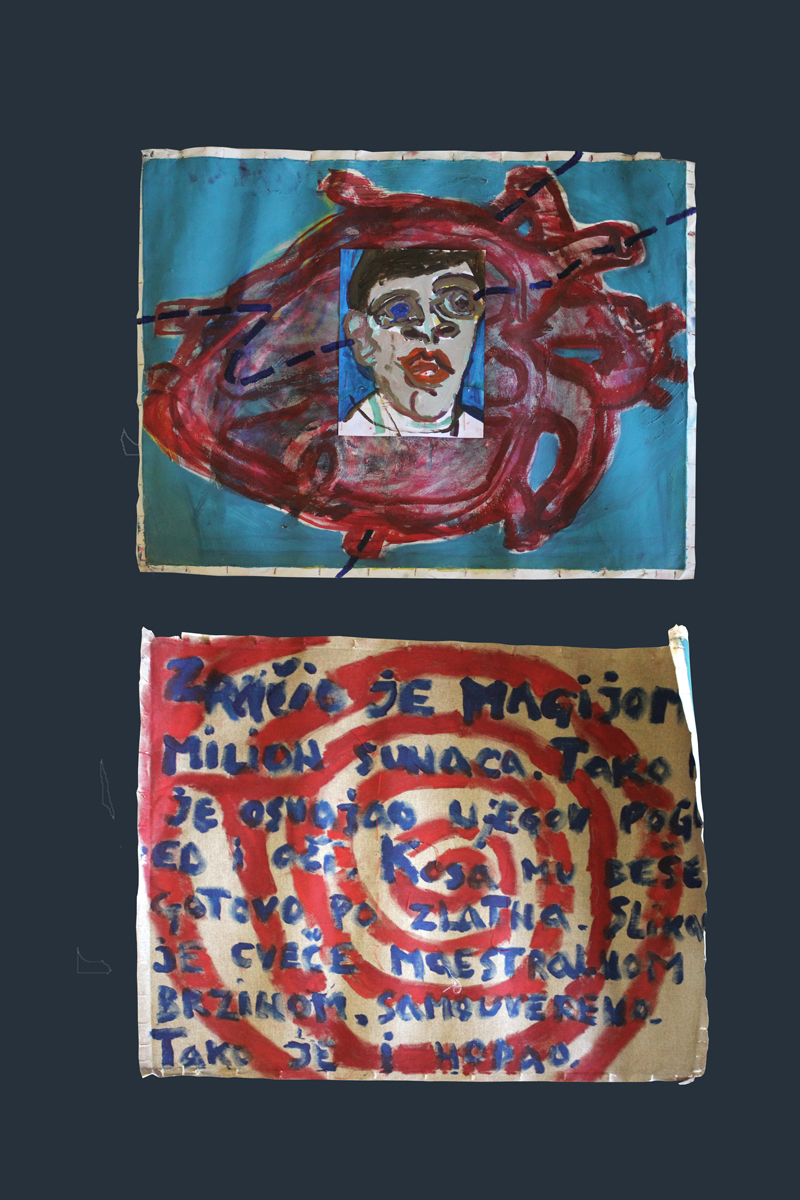 ZRAČIO JE MAGIJOM
MILION SUNACA. TAKO
JE OSVOJAO NJEGOV POGL
ED I OČI. KOSA MU BEŠE
GOTOVO PO ZLATNA. SLIKAO
JE CVEČE MAESTRALNOM
BRZINOM. SAMOUVERENO.
TAKO JE I HODAO.